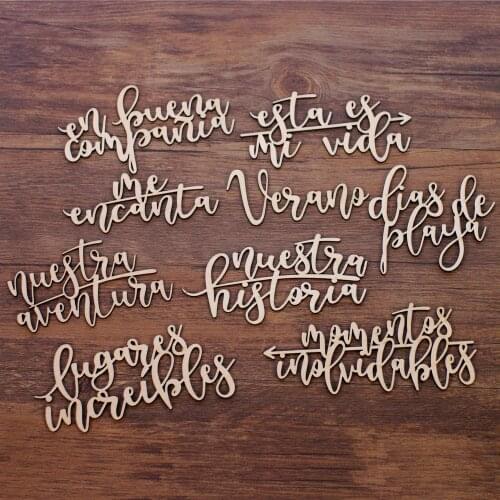 en buena
compañia
esta es
mi vida
me
encanta
Verano
dias de
playa
nuestra
aventura
nuestra
historia
lugares
increíbles
momentos
inolvidables